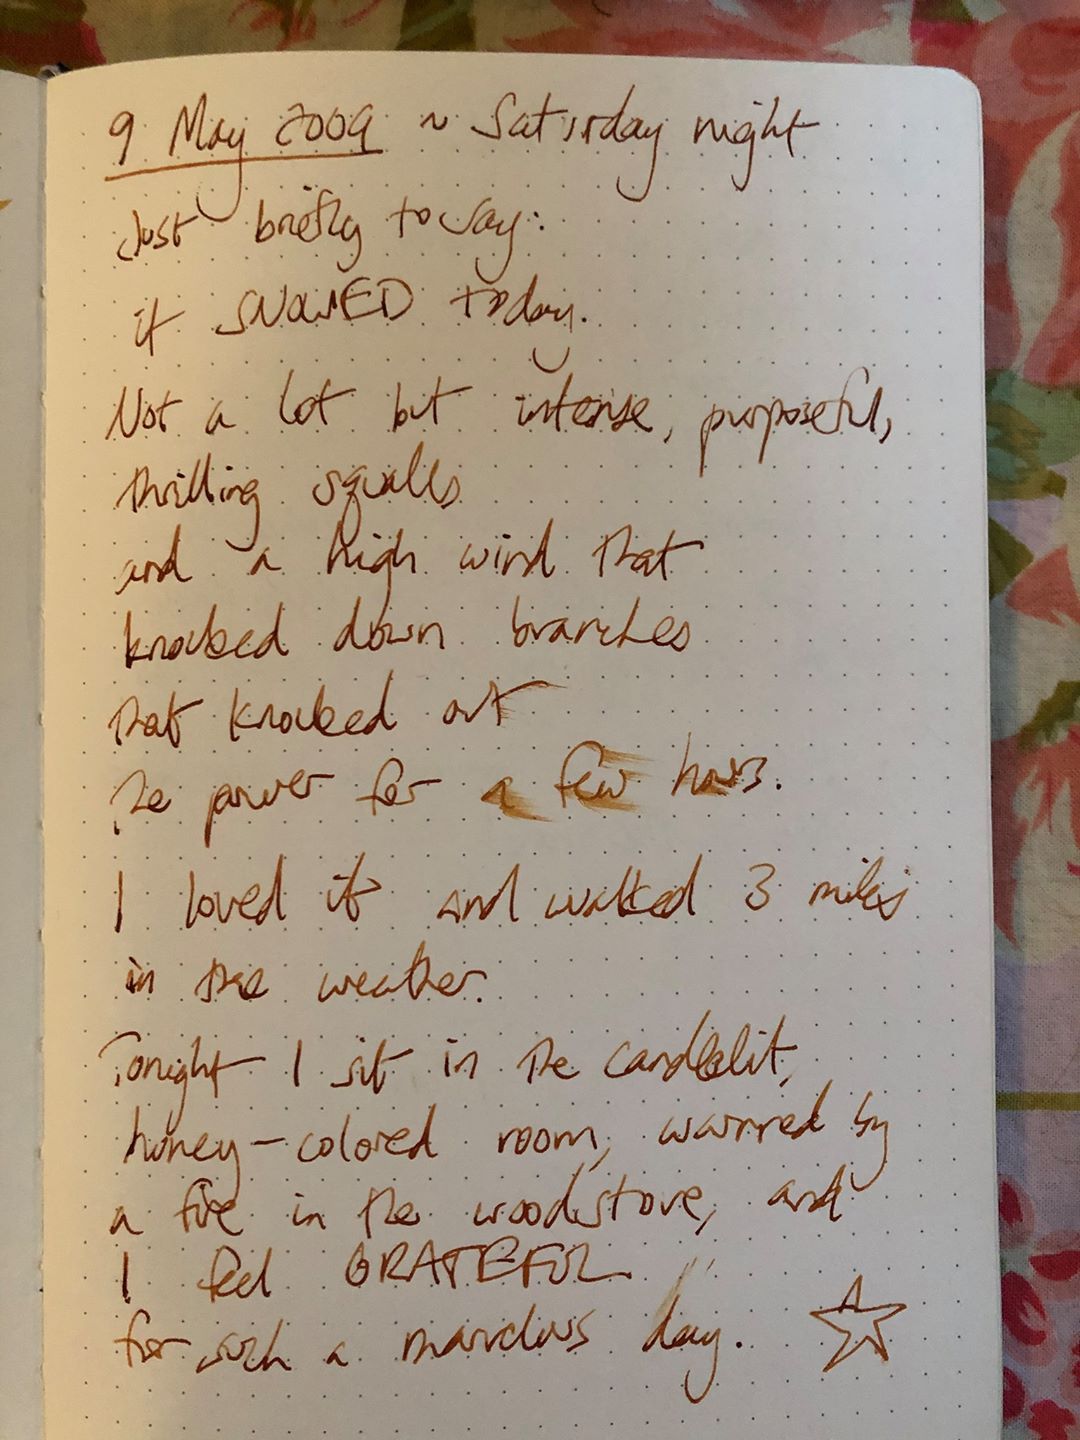 9 May 2009 ~ Saturday night
Just briefly to say:
it SNOWED today.
Not a lot but intense, purposeful,
thrilling squalls
and a high wind that
knocked down branches
that knocked out
the power for a few hours.
I loved it and walked 3 miles
in the weather.
Tonight I sit in the candlelit,
honey-colored room, warmed by
a fire in the woodstove, and
I feel GRATEFUL
for such a marvelous day.